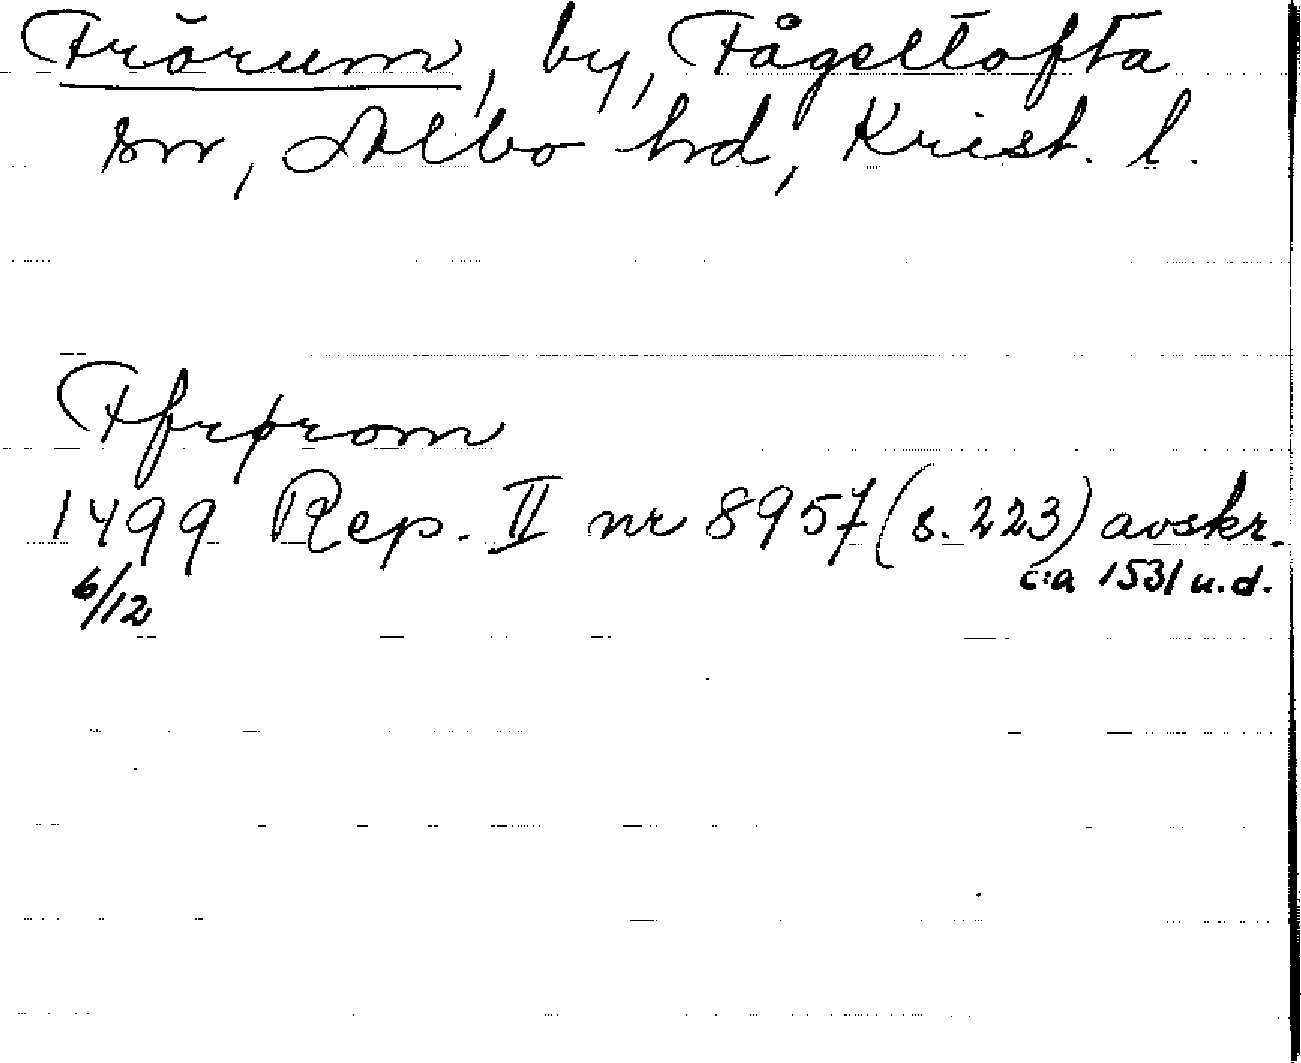 Frörum, by, Fågeltofta
sn, Albo hd, Krist. l.
Ffrørom
1499 Rep. II nr 8957 (s. 223) avskr.
6/12 c:a 1531 u.d.